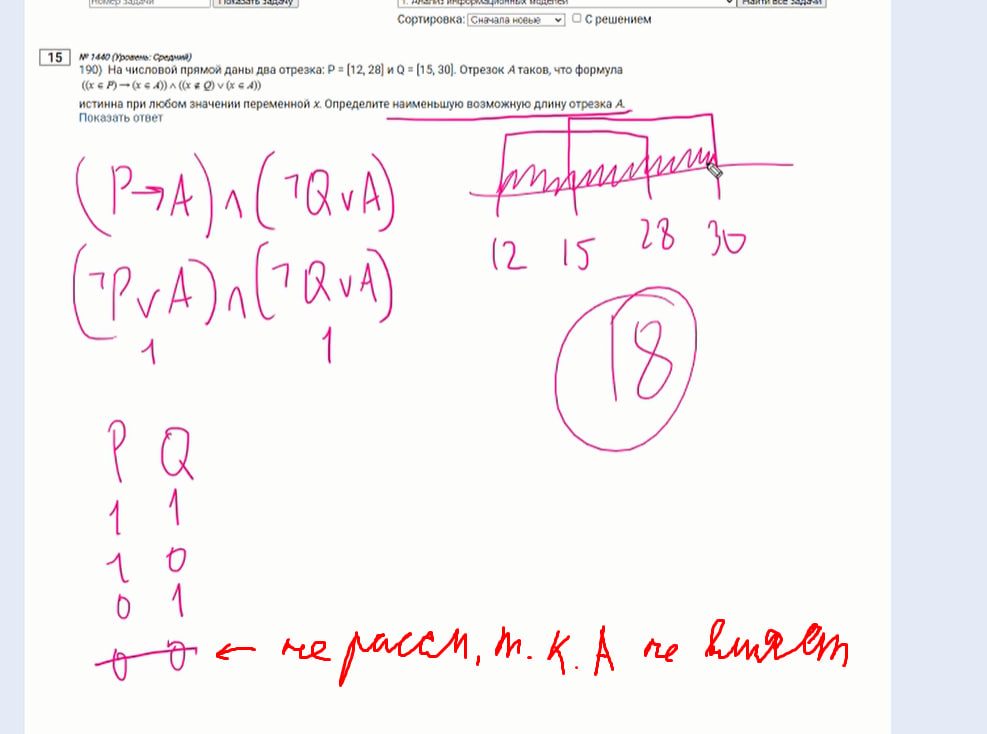 Номер задачи Показать задачу 1. Анализ информационных моделей Найти все задачи
Сортировка: Сначала новые С решением
15 № 1440 (Уровень: Средний)
190) На числовой прямой даны два отрезка: P = [12, 28] и Q = [15, 30]. Отрезок A таков, что формула
((x ∈ P) → (x ∈ A)) ∧ ((x ∉ Q) ∨ (x ∈ A))
истинна при любом значении переменной x. Определите наименьшую возможную длину отрезка A.
Показать ответ
(P→A) ∧ (¬Q∨A)
12 15 28 30
(¬P∨A) ∧ (¬Q∨A)
1 1
18
P Q
1 1
1 0
0 1
0 0 ← не рассм, т. к. A не влияет